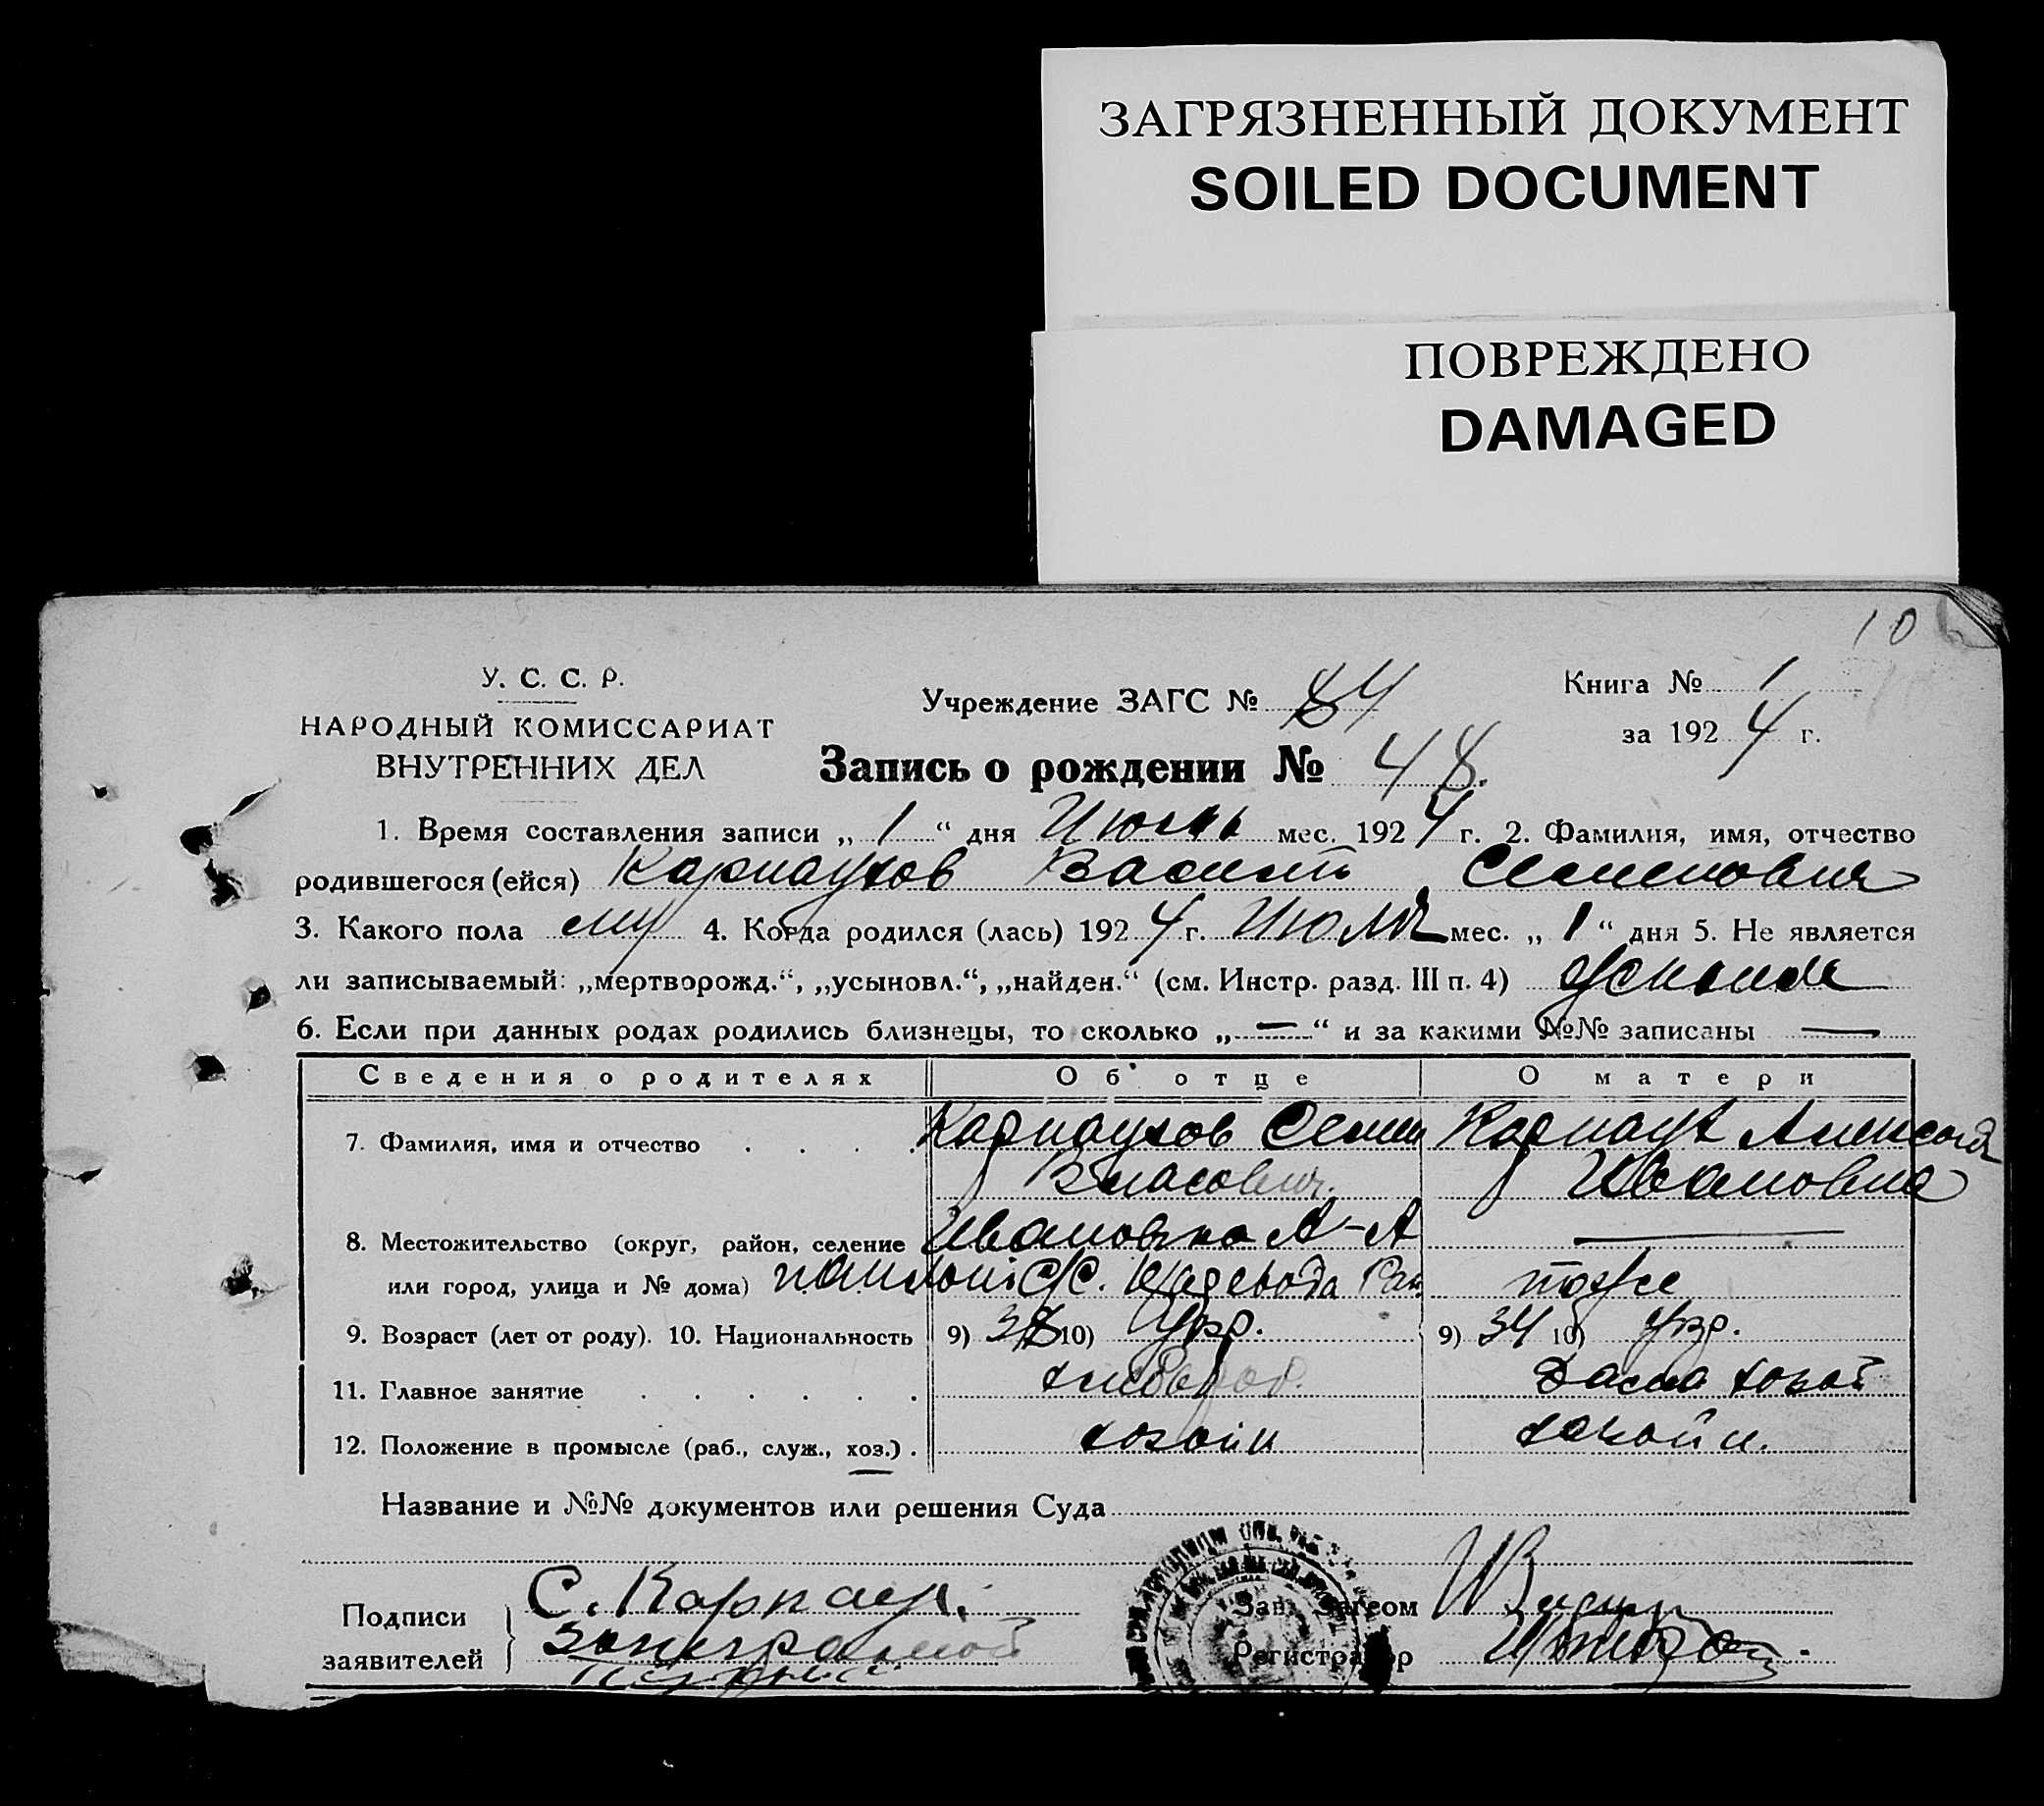 ЗАГРЯЗНЕННЫЙ ДОКУМЕНТ
SOILED DOCUMENT
ПОВРЕЖДЕНО
DAMAGED
10
У. С. С. Р.
НАРОДНЫЙ КОМИССАРИАТ
ВНУТРЕННИХ ДЕЛ
Учреждение ЗАГС № 84
Книга № 1
за 1924 г.
Запись о рождении № 48.
1. Время составления записи „ 1 “ дня Июль мес. 1924 г. 2. Фамилия, имя, отчество
родившегося (ейся) Карнаухов Василь Семенович
3. Какого пола муж 4. Когда родился (лась) 1924 г. Июля мес. „ 1 “ дня 5. Не является
ли записываемый: „мертворожд.“, „усыновл.“, „найден.“ (см. Инстр. разд. III п. 4)
6. Если при данных родах родились близнецы, то сколько „ — “ и за какими №№ записаны —
Сведения о родителях Об отце О матери
7. Фамилия, имя и отчество . . . . Карнаухов Семен Карнаух
Власович. Ивановна
8. Местожительство (округ, район, селение Ивановка А-А —
или город, улица и № дома) С/С. тоже
9. Возраст (лет от роду). 10. Национальность 9) 10) Укр. 9) 34 10) Укр.
11. Главное занятие . . . . . .
12. Положение в промысле (раб., служ., хоз.) . хозяин
Название и №№ документов или решения Суда
Подписи
заявителей
С. Карнаух.
Зав. Загсом
Регистратор